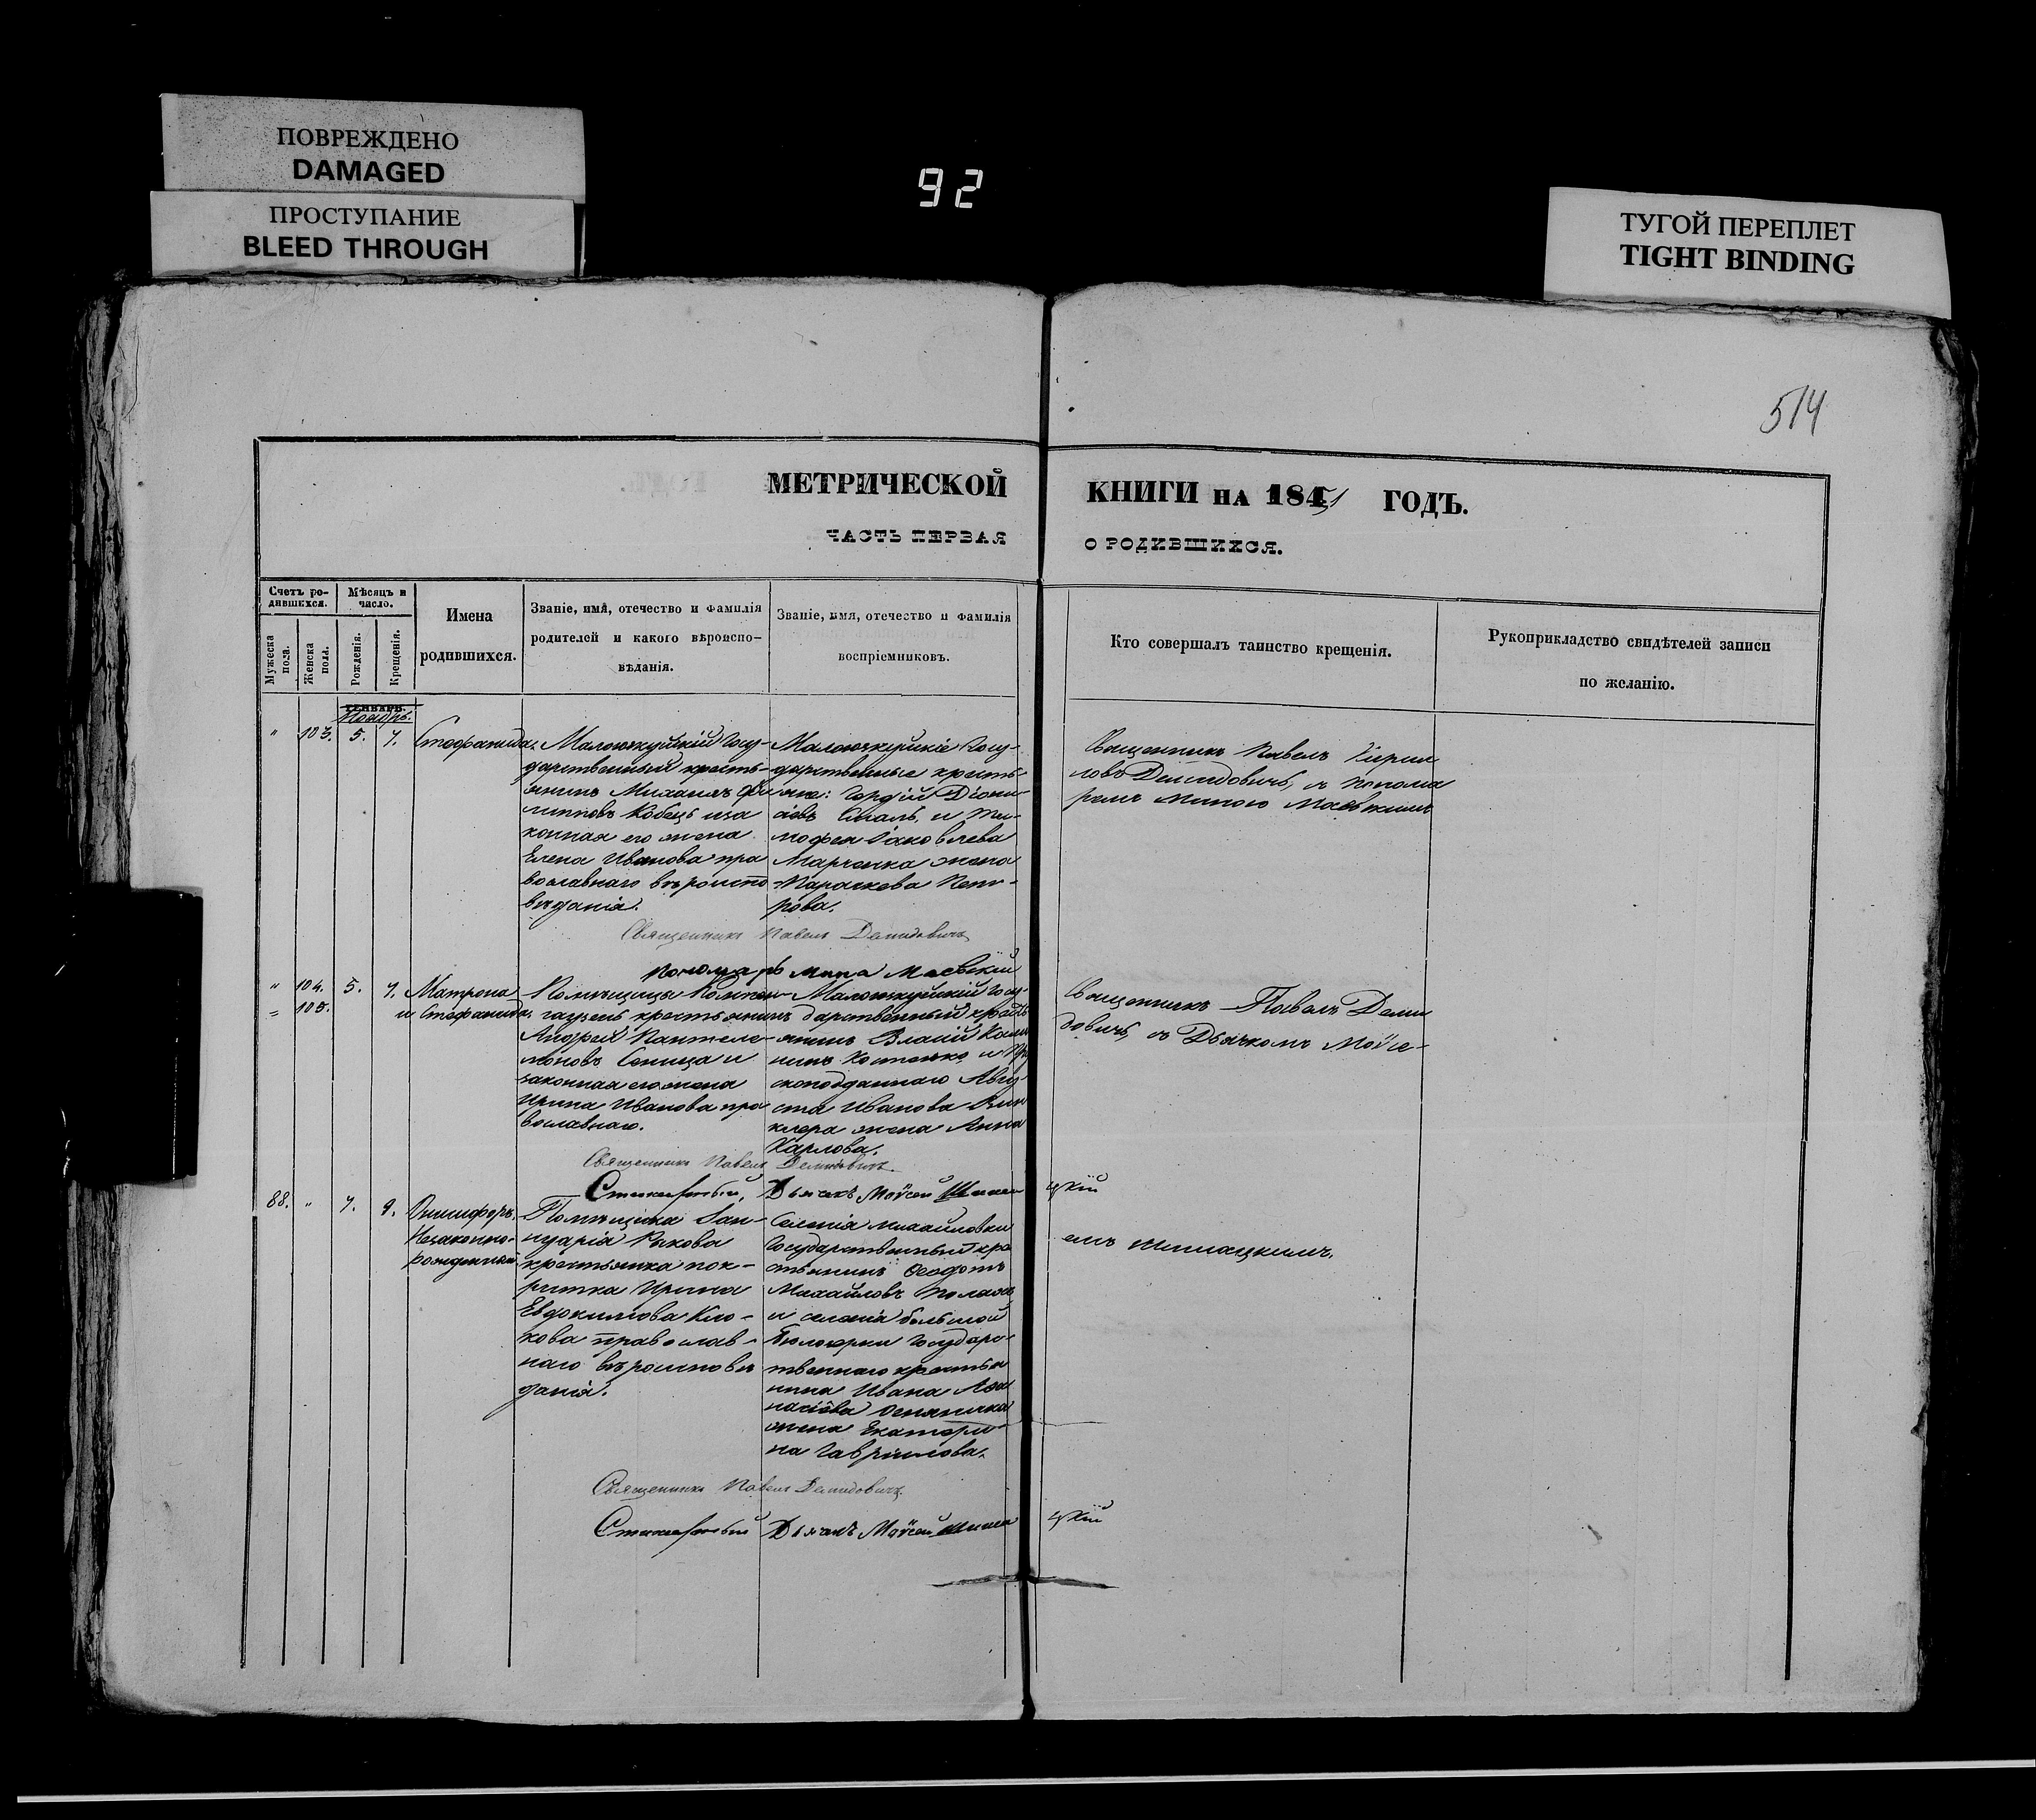 ПОВРЕЖДЕНО
DAMAGED
ПРОСТУПАНИЕ
BLEED THROUGH
92
ТУГОЙ ПЕРЕПЛЕТ
TIGHT BINDING
514
МЕТРИЧЕСКОЙ КНИГИ НА 1851 ГОДЪ.
ЧАСТЬ ПЕРВАЯ О РОДИВШИХСЯ.
Счетъ ро-
дившихся.
Мужеска
пола.
Женска
пола.
Мѣсяцъ и
число.
Рожденія.
Крещенія.
Имена
родившихся.
Званіе, имя, отечество и фамилія
родителей и какого вѣроиспо-
вѣданія.
Званіе, имя, отечество и фамилія
воспріемниковъ.
Кто совершалъ таинство крещенія.
Рукоприкладство свидѣтелей записи
по желанію.
Ноябрь.
" 103. 5. 7.
Стефанида.
государственный кресть-
янинъ Михаилъ Фи-
липповъ Кобецъ и за
конная его жена
Елена Иванова пра
вославнаго вѣроиспо
вѣданія.
Госу-
дарственные кресть-
яне: Гордій Діони-
сіевъ и Ти-
мофея Іаковлева
Марченка жена
Параскева Пет-
рова.
Священникъ Павелъ Кирил
ловъ Демидовичъ, съ понома
ремъ Миною Маевскимъ
Священникъ Павелъ Демидовичъ
Пономарь Мина Маевскій
" 104. 5. 7.
" 105.
Матрона
и Стефанида
Помѣщицы
крестьянинъ
Андрей Пантеле-
моновъ Сеница и
законная его жена
Ирина Иванова пра
вославнаго.
Госу-
дарственный кресть
янинъ Власій
Костенко и
скоподданнаго Авгу-
ста Иванова Вин
клера жена Анна
Карлова.
Священникъ Павелъ Деми
довичъ, съ Дьячкомъ Моѵсе-
Священникъ Павелъ Демидовичъ.
Стихарный, Дьячекъ Моѵсей Шимацкій
88. " 7. 9.
Онисифоръ.
Незаконно-
рожденный
Помѣщика Іан-
нуарія Рыкова
крестьянка пок-
рытка Ирина
Евдокимова Клю-
кова православ-
наго вѣроисповѣ
данія.
Селенія Михайловки
Государственный кре
стьянинъ Ѳеодотъ
Михайловъ
и селенія большой
Государс-
твеннаго крестья
нина Ивана Аѳа
насіева
жена Екатери-
на Гавриилова.
емъ Шимацкимъ.
Священникъ Павелъ Демидовичъ.
Стихарный Дьячекъ Моѵсей Шимацкій